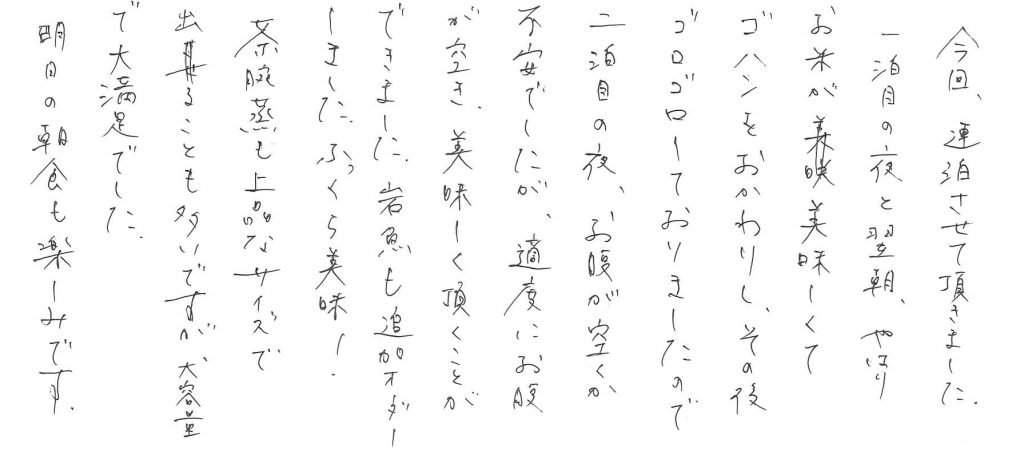 今回、連泊させて頂きました。
一泊目の夜と翌朝、やはり
お米が美味しくて
ゴハンをおかわりし、その後
ゴロゴロしておりましたので
二泊目の夜、お腹が空くか
不安でしたが、適度にお腹
が空き、美味しく頂くことが
できました。岩魚も追加オーダー
しました。ふっくら美味！
茶腕蒸も上品なサイズで
出せることも多いですが、大容量
で大満足でした。
明日の朝食も楽しみです。